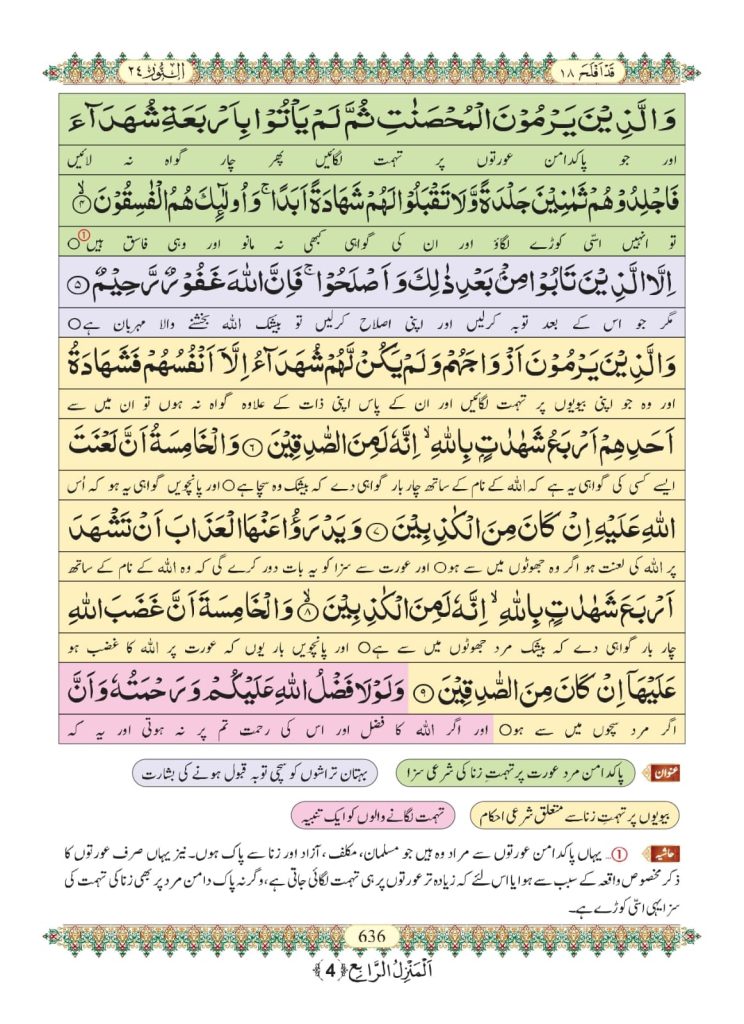 قَدْ اَفْلَحَ ١٨
اَلنُّوْر ٢٤
وَالَّذِيْنَ يَرْمُوْنَ الْمُحْصَنٰتِ ثُمَّ لَمْ يَاْتُوْا بِاَرْبَعَةِ شُهَدَآءَ
اور جو پاکدامن عورتوں پر تہمت لگائیں پھر چار گواہ نہ لائیں
فَاجْلِدُوْهُمْ ثَمٰنِيْنَ جَلْدَةً وَّلَا تَقْبَلُوْا لَهُمْ شَهَادَةً اَبَدًا ۚ وَاُولٰٓئِكَ هُمُ الْفٰسِقُوْنَ ۙ﴿٤﴾
تو انہیں اسّی کوڑے لگاؤ اور ان کی گواہی کبھی نہ مانو اور وہی فاسق ہیں①○
اِلَّا الَّذِيْنَ تَابُوْا مِنْۢ بَعْدِ ذٰلِكَ وَاَصْلَحُوْا ۚ فَاِنَّ اللّٰهَ غَفُوْرٌ رَّحِيْمٌ ﴿٥﴾
مگر جو اس کے بعد توبہ کرلیں اور اپنی اصلاح کرلیں تو بیشک اللہ بخشنے والا مہربان ہے○
وَالَّذِيْنَ يَرْمُوْنَ اَزْوَاجَهُمْ وَلَمْ يَكُنْ لَّهُمْ شُهَدَآءُ اِلَّاۤ اَنْفُسُهُمْ فَشَهَادَةُ
اور وہ جو اپنی بیویوں پر تہمت لگائیں اور ان کے پاس اپنی ذات کے علاوہ گواہ نہ ہوں تو ان میں سے
اَحَدِهِمْ اَرْبَعُ شَهٰدٰتٍۭ بِاللّٰهِ ۙ اِنَّهٗ لَمِنَ الصّٰدِقِيْنَ ﴿٦﴾ وَالْخَامِسَةُ اَنَّ لَعْنَتَ
ایسے کسی کی گواہی یہ ہے کہ اللہ کے نام کے ساتھ چار بار گواہی دے کہ بیشک وہ سچا ہے○ اور پانچویں گواہی یہ ہو کہ اُس
اللّٰهِ عَلَيْهِ اِنْ كَانَ مِنَ الْكٰذِبِيْنَ ﴿٧﴾ وَيَدْرَؤُا عَنْهَا الْعَذَابَ اَنْ تَشْهَدَ
پر اللہ کی لعنت ہو اگر وہ جھوٹوں میں سے ہو○ اور عورت سے سزا کو یہ بات دور کرے گی کہ وہ اللہ کے نام کے ساتھ
اَرْبَعَ شَهٰدٰتٍۭ بِاللّٰهِ ۙ اِنَّهٗ لَمِنَ الْكٰذِبِيْنَ ۙ﴿٨﴾ وَالْخَامِسَةَ اَنَّ غَضَبَ اللّٰهِ
چار بار گواہی دے کہ بیشک مرد جھوٹوں میں سے ہے○ اور پانچویں بار یوں کہ عورت پر اللہ کا غضب ہو
عَلَيْهَاۤ اِنْ كَانَ مِنَ الصّٰدِقِيْنَ ﴿٩﴾ وَلَوْلَا فَضْلُ اللّٰهِ عَلَيْكُمْ وَرَحْمَتُهٗ وَاَنَّ
اگر مرد سچوں میں سے ہو○ اور اگر اللہ کا فضل اور اس کی رحمت تم پر نہ ہوتی اور یہ کہ
عنوان پاکدامن مرد عورت پر تہمتِ زنا کی شرعی سزا بہتان تراشوں کو سچی توبہ قبول ہونے کی بشارت
بیویوں پر تہمتِ زنا سے متعلق شرعی احکام تہمت لگانے والوں کو ایک تنبیہ
حاشیہ ①... یہاں پاکدامن عورتوں سے مراد وہ ہیں جو مسلمان، مکلف، آزاد اور زنا سے پاک ہوں۔ نیز یہاں صرف عورتوں کا
ذکر مخصوص واقعہ کے سبب سے ہوا یا اس لئے کہ زیادہ تر عورتوں پر ہی تہمت لگائی جاتی ہے، وگرنہ پاک دامن مرد پر بھی زنا کی تہمت کی
سزا یہی اسّی کوڑے ہے۔
636
اَلْمَنْزِلُ الرَّابِع ﴿4﴾